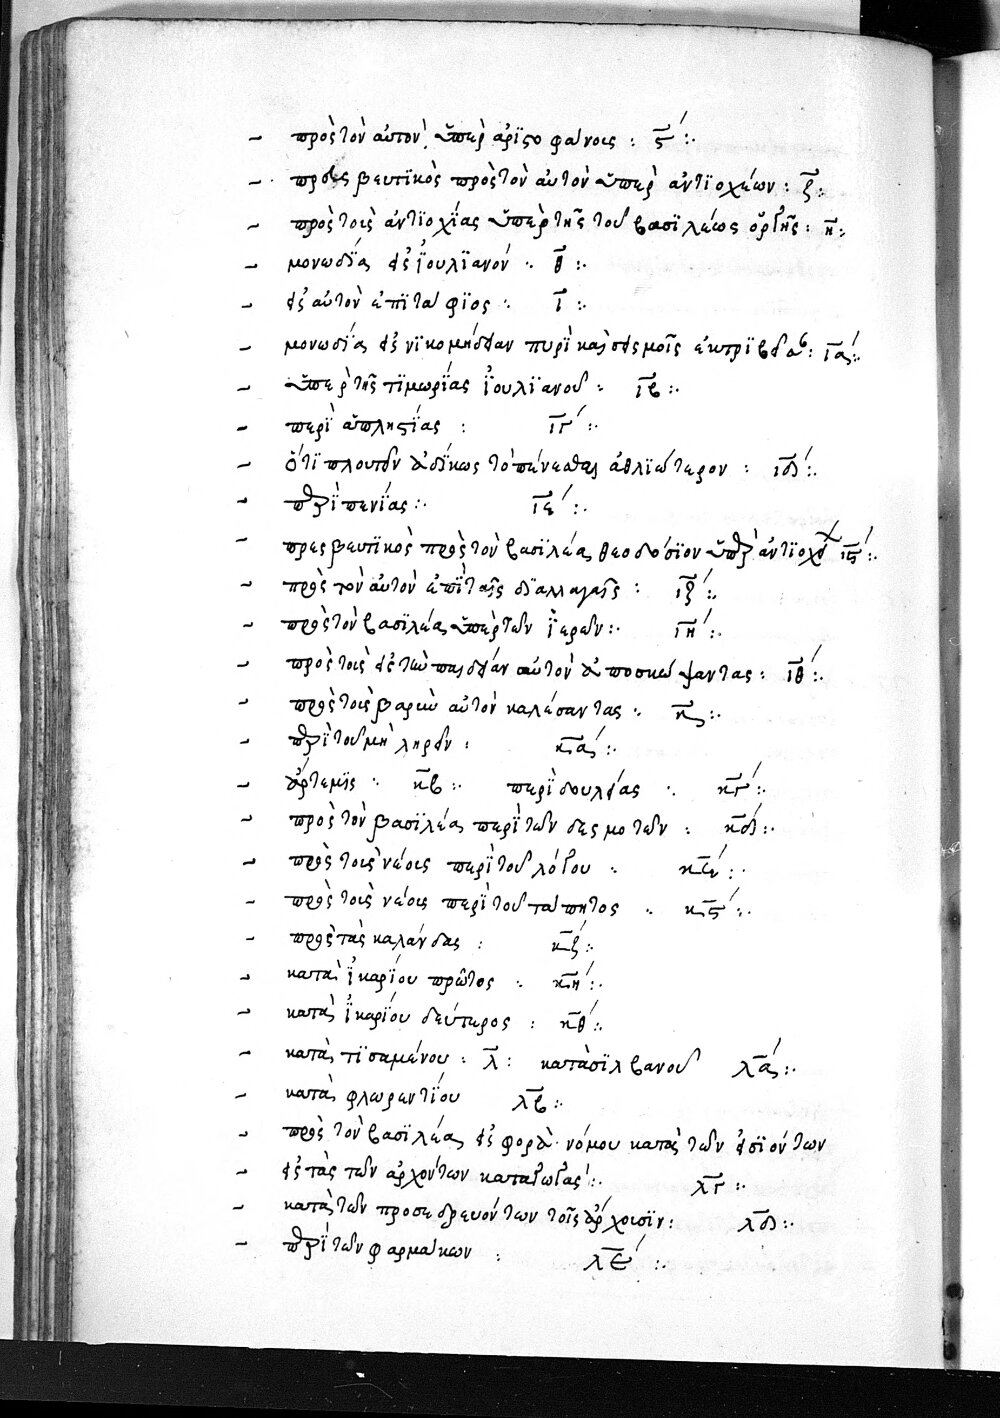 – πρὸς τὸν αὐτὸν ὑπὲρ ἀριστοφάνους : ϛ´ :·
– πρεσβευτικὸς πρὸς τὸν αὐτὸν ὑπὲρ ἀντιοχέων : ζ :·
– πρὸς τοὺς ἀντιοχίας ὑπὲρ τῆς τοῦ βασϊλέως ὀργῆς : η :·
– μονωδΐα εἰς ϊουλϊανόν :· θ :·
– εἰς αὐτὸν ἐπϊτάφϊος :· ϊ :·
– μονωδΐα εἰς νϊκομήδειαν πυρὶ καὶ σεισμοῖς ἐκτρϊβεῖσα : ια´ :·
– ὑπὲρ τῆς τϊμωρΐας ϊουλϊανοῦ :· ιβ :·
– περὶ ἀπληστΐας : ιγ´ :·
– ὅτϊ πλουτεῖν ἀδΐκως τὸ πένεσθαι ἀθλϊώτερον : ιδ´ :·
– περὶ πενΐας :· ιε´ :·
– πρεσβευτϊκὸς πρὸς τὸν βασϊλέα θεοδόσϊον ὑπὲρ ἀντϊοχ ιϛ´ :·
– πρὸς τὸν αὐτὸν ἐπὶ ταῖς δϊαλλαγαῖς : ιζ´ :·
– πρὸς τὸν βασϊλέα ὑπὲρ τῶν ϊερῶν :· ιη´ :·
– πρὸς τοὺς εἰς τὴν παιδείαν αὐτὸν ἀποσκώψαντας : ιθ´ :·
– πρὸς τοὺς βαρὺν αὐτὸν καλέσαντας :· κ :·
– περὶ τοῦ μὴ ληρεῖν : κα´ :·
– ἄρτεμϊς :· κβ :· περὶ δουλείας :· κγ´ :·
– πρὸς τὸν βασϊλέα περὶ τῶν δεσμοτῶν : κδ´ :·
– πρὸς τοὺς νέους περὶ τοῦ λόγου :· κε´ :·
– πρὸς τοὺς νέους περὶ τοῦ τάπητος :· κϛ´ :·
– πρὸς τὰς καλάνδας : κζ :·
– κατὰ ϊκαρΐου πρῶτος :· κη´ :·
– κατὰ ϊκαρΐου δεύτερος : κθ´ :·
– κατὰ τϊσαμένου : λ : κατὰ σϊλβανοῦ λα´ :·
– κατὰ φλωρεντΐου λβ :·
– πρὸς τὸν βασϊλέα εἰσφορὰ νόμου κατὰ τῶν εἰσϊόντων
εἰς τὰς τῶν ἀρχόντων καταγωγάς :· λγ :·
– κατὰ τῶν προσεδρευόντων τοῖς ἄρχουσϊν : λδ :·
– περὶ τῶν φαρμάκων : λε´ :·